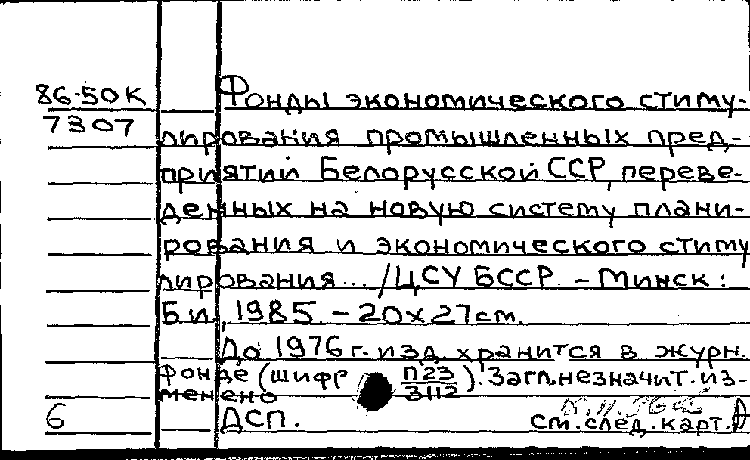 86-50К
7307
Фонды экономического стиму-
лирования промышленных пред-
приятий Белорусской ССР, переве-
денных на новую систему плани-
рования и экономического стиму
лирования... /ЦСУ БССР - Минск:
Б.и., 1985. - 20x27см.
До 1976 г. изд. хранится в журн.
фонде (шифр П23/3112). Загл. незначит. из-
менено
6 ДСП. см. след. карт.